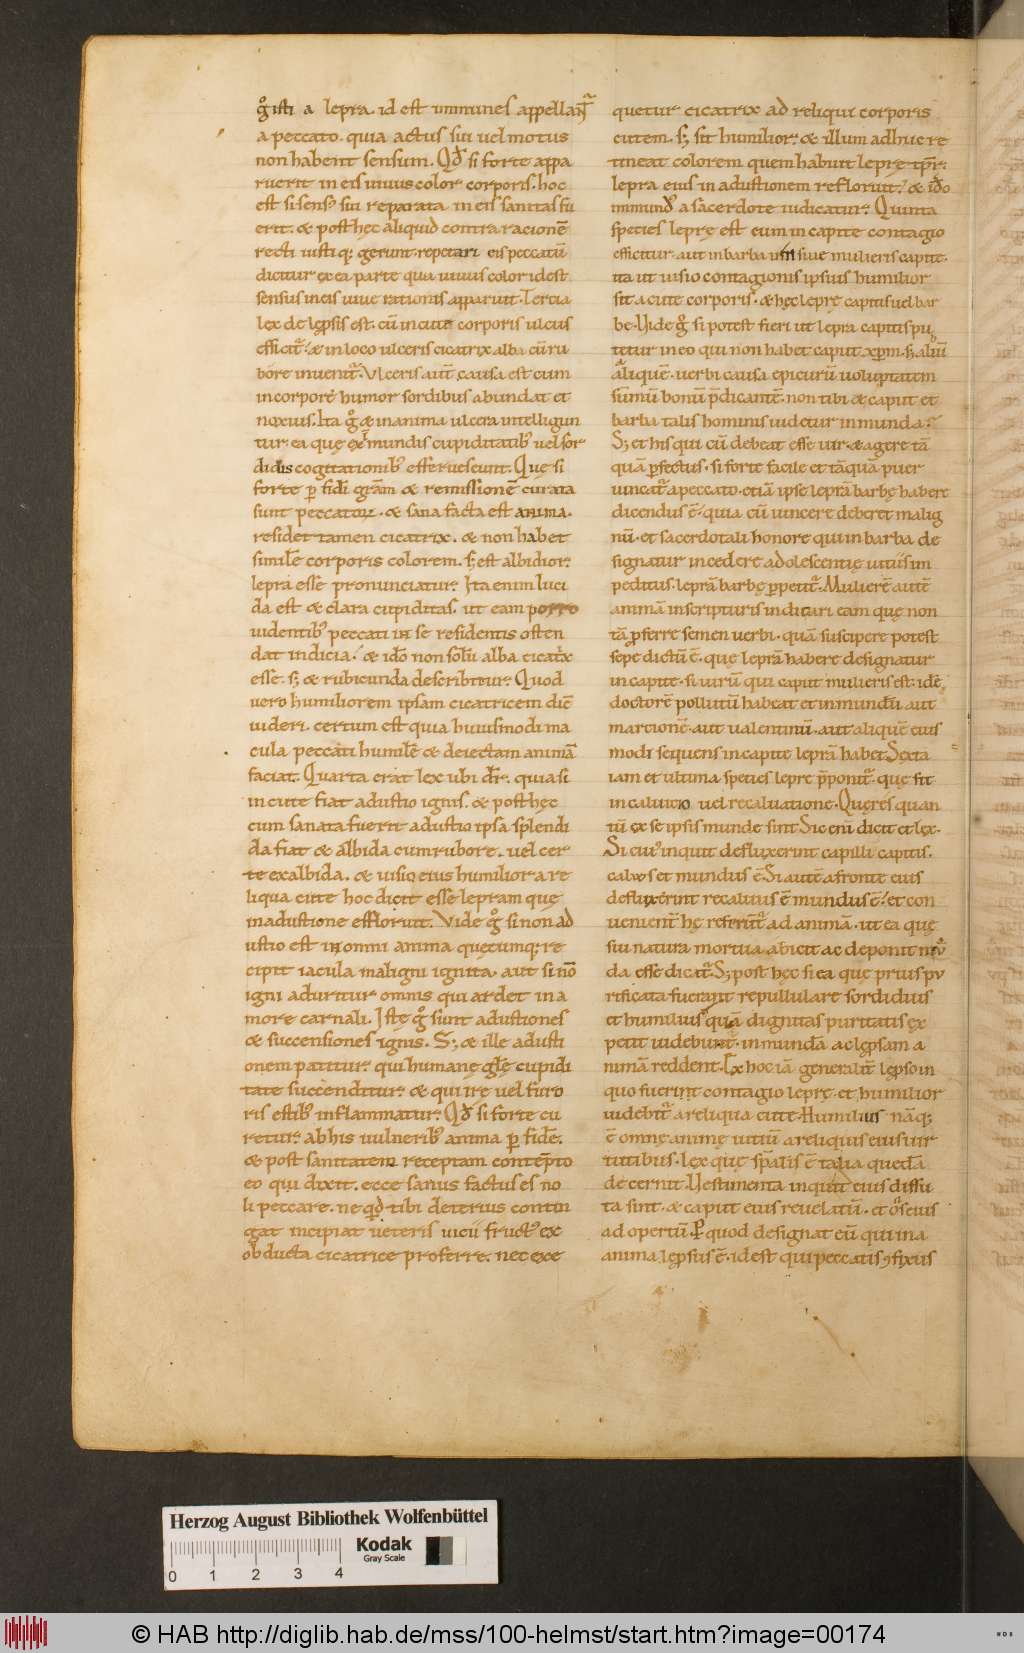 g isti a lepra. id est immunes appellant᷑
a peccato. quia actus sui uel motus
non habent sensum. Qd̄ si forte appa
ruerit in eis uiuus color corporis. hoc
est si sensꝰ sui reparata in eis sanitas fu
erit. & post hęc aliquid contra racionē
recti iustiq; gerunt. repetari eis peccatū
dicitur ex ea parte qua uiuus color idest
sensus in eis uiue rationis apparuit. Tercia
lex de lępsis est. cū in cute corporis ulcus
efficit᷑. & in loco ulceris cicatrix alba cū ru
bore inuenit᷑. Vlceris aut̄ causa est cum
in corporé humor sordibus abundat et
noxius. Ita g̊ & in anima ulcera intelligun
tur. ea quę ex īmundis cupiditatibꝰ uel sor
didis cogitationibꝰ efferuescunt. Quę si
forte p̱ fidēi grām & remissionē curata
sunt peccatoꝝ. & sana facta est anima.
residet tamen cicatrix. & non habet
similē corporis colorem. s; est albidior.
lepra esse pronunciatur. Ita enim luci
da est & clara cupiditas. ut eam porro
uidentibꝰ peccati in se residentis osten
dat indicia. & id̊o non solū alba cicatrix
esse. s; & rubicunda describitur. Quod
uero humiliorem ipsam cicatricem dic̄
uideri. certum est quia huiusmodi ma
cula peccati humilē & deiectam animā
faciat. Quarta erat lex ubi dr̄. quia si
in cute fiat adustio ignis. & post hęc
cum sanata fuerit adustio ipsa splendi
da fiat & albida cum rubore. uel cer
te exalbida. & uisio eius humilior a re
liqua cute hoc dicit esse lepram quę
in adustione effloruit. Vide g̊ si non ad
ustio est in omni anima quęcumq; re
cipit iacula maligni ignita. aut si nō
igni aduritur omnis qui ardet in a
more carnali. Istę g̊ sunt adustiones
& succensiones ignis. S; & ille adusti
onem patitur qui humanę glę cupidi
tate succenditur. & qui irę uel furo
ris estibꝰ inflammatur. Qd̄ si forte cu
retur. ab his uulneribꝰ anima p̱ fidē.
& post sanitatem receptam contēpto
eo qui dixit. ecce sanus factus es no
li peccare. ne qd̄ tibi deterius contin
gat incipiat ueteris uicii fructꝰ ex
obducta cicatrice proferre. nec exe
quetur cicatrix ad reliqui corporis
cutem. s; sit humilior. & illum adhuc re
tineat colorem quem habuit lepre tp̄r.
lepra eius in adustionem refloruit. & id̊o
inmundꝰ a sacerdote iudicatur. Quinta
species leprę est cum in capite contagio
efficitur. aut in barba uiri siue mulieris capite.
ita ut uisio contagionis ipsius humilior
sit a cute corporis. & hęc leprę capitis uel bar
be. Vide g̊ si potest fieri ut lepra capitis pu
tetur in eo qui non habet caput xp̄m. s; aliū
aliquē. uerbi causa epicurū uoluptatem
sūmū bonū p̄dicantē. non tibi & caput et
barba talis hominis uidetur inmunda.
S; et his qui cū debeat esse uir. & agere tā
quā perfectus. si forte facile et tāquā puer
uincit᷑ a peccato. etiā ipse leprā barbę habere
dicendus ē. quia cū uincere deberet malig
nū. et sacerdotali honore qui in barba de
signatur incedere adolescentię uitiis im
peditus. leprā barbę perpetit᷑. Mulierē autē
animā in scripturis indicari eam quę non
tā proferre semen uerbi. quā suscipere potest
sepe dictū ē. quę leprā habere designatur
in capite. si uirū qui caput mulieris est. idē
doctorē pollutū habeat et inmundū aut
marcionē. aut ualentinū. aut aliquē eius
modi sequens in capite leprā habet. Sexta
iam et ultima species lepre p̄ponit᷑. quę fit
in caluicio uel recaluatione. Quęres quan
tū ex se ipsis munde sint. Sic enī dicit et lex.
Si cui inquit defluxerint capilli capitis.
caluꝰ et mundus ē. Si autē a fronte eius
defluxerint recaluus ē mundus ē. et con
uenient̄ hę referunt᷑ ad animā. ut ea quę
sui natura mortua abicit ac deponit
da esse dicat᷑. S; post hęc si ea quę prius pu
rificata fuerant repullulare sordidius
et humilius quā dignitas puritatis ex
petit uidebunt᷑. inmundā ac lępsam a
nimā reddent. Ex hoc iā generalit̄ lępso in
quo fuerint contagio leprę. et humilior
uidebit᷑ a reliqua cute. Humilius nāq;
ē omne animę uitiū a reliquis eius uir
tutibus. lex quę spālis ē talia quedā
decernit. Vestimenta inquit eius dissu
ta sint. & caput eius reuelatū. et os eius
ad opertū. P quod designat eū qui in a
anima lępsus ē. id est qui peccatis ꝯfixus
Herzog August Bibliothek Wolfenbüttel
Kodak
Gray Scale
0 1 2 3 4
© HAB http://diglib.hab.de/mss/100-helmst/start.htm?image=00174